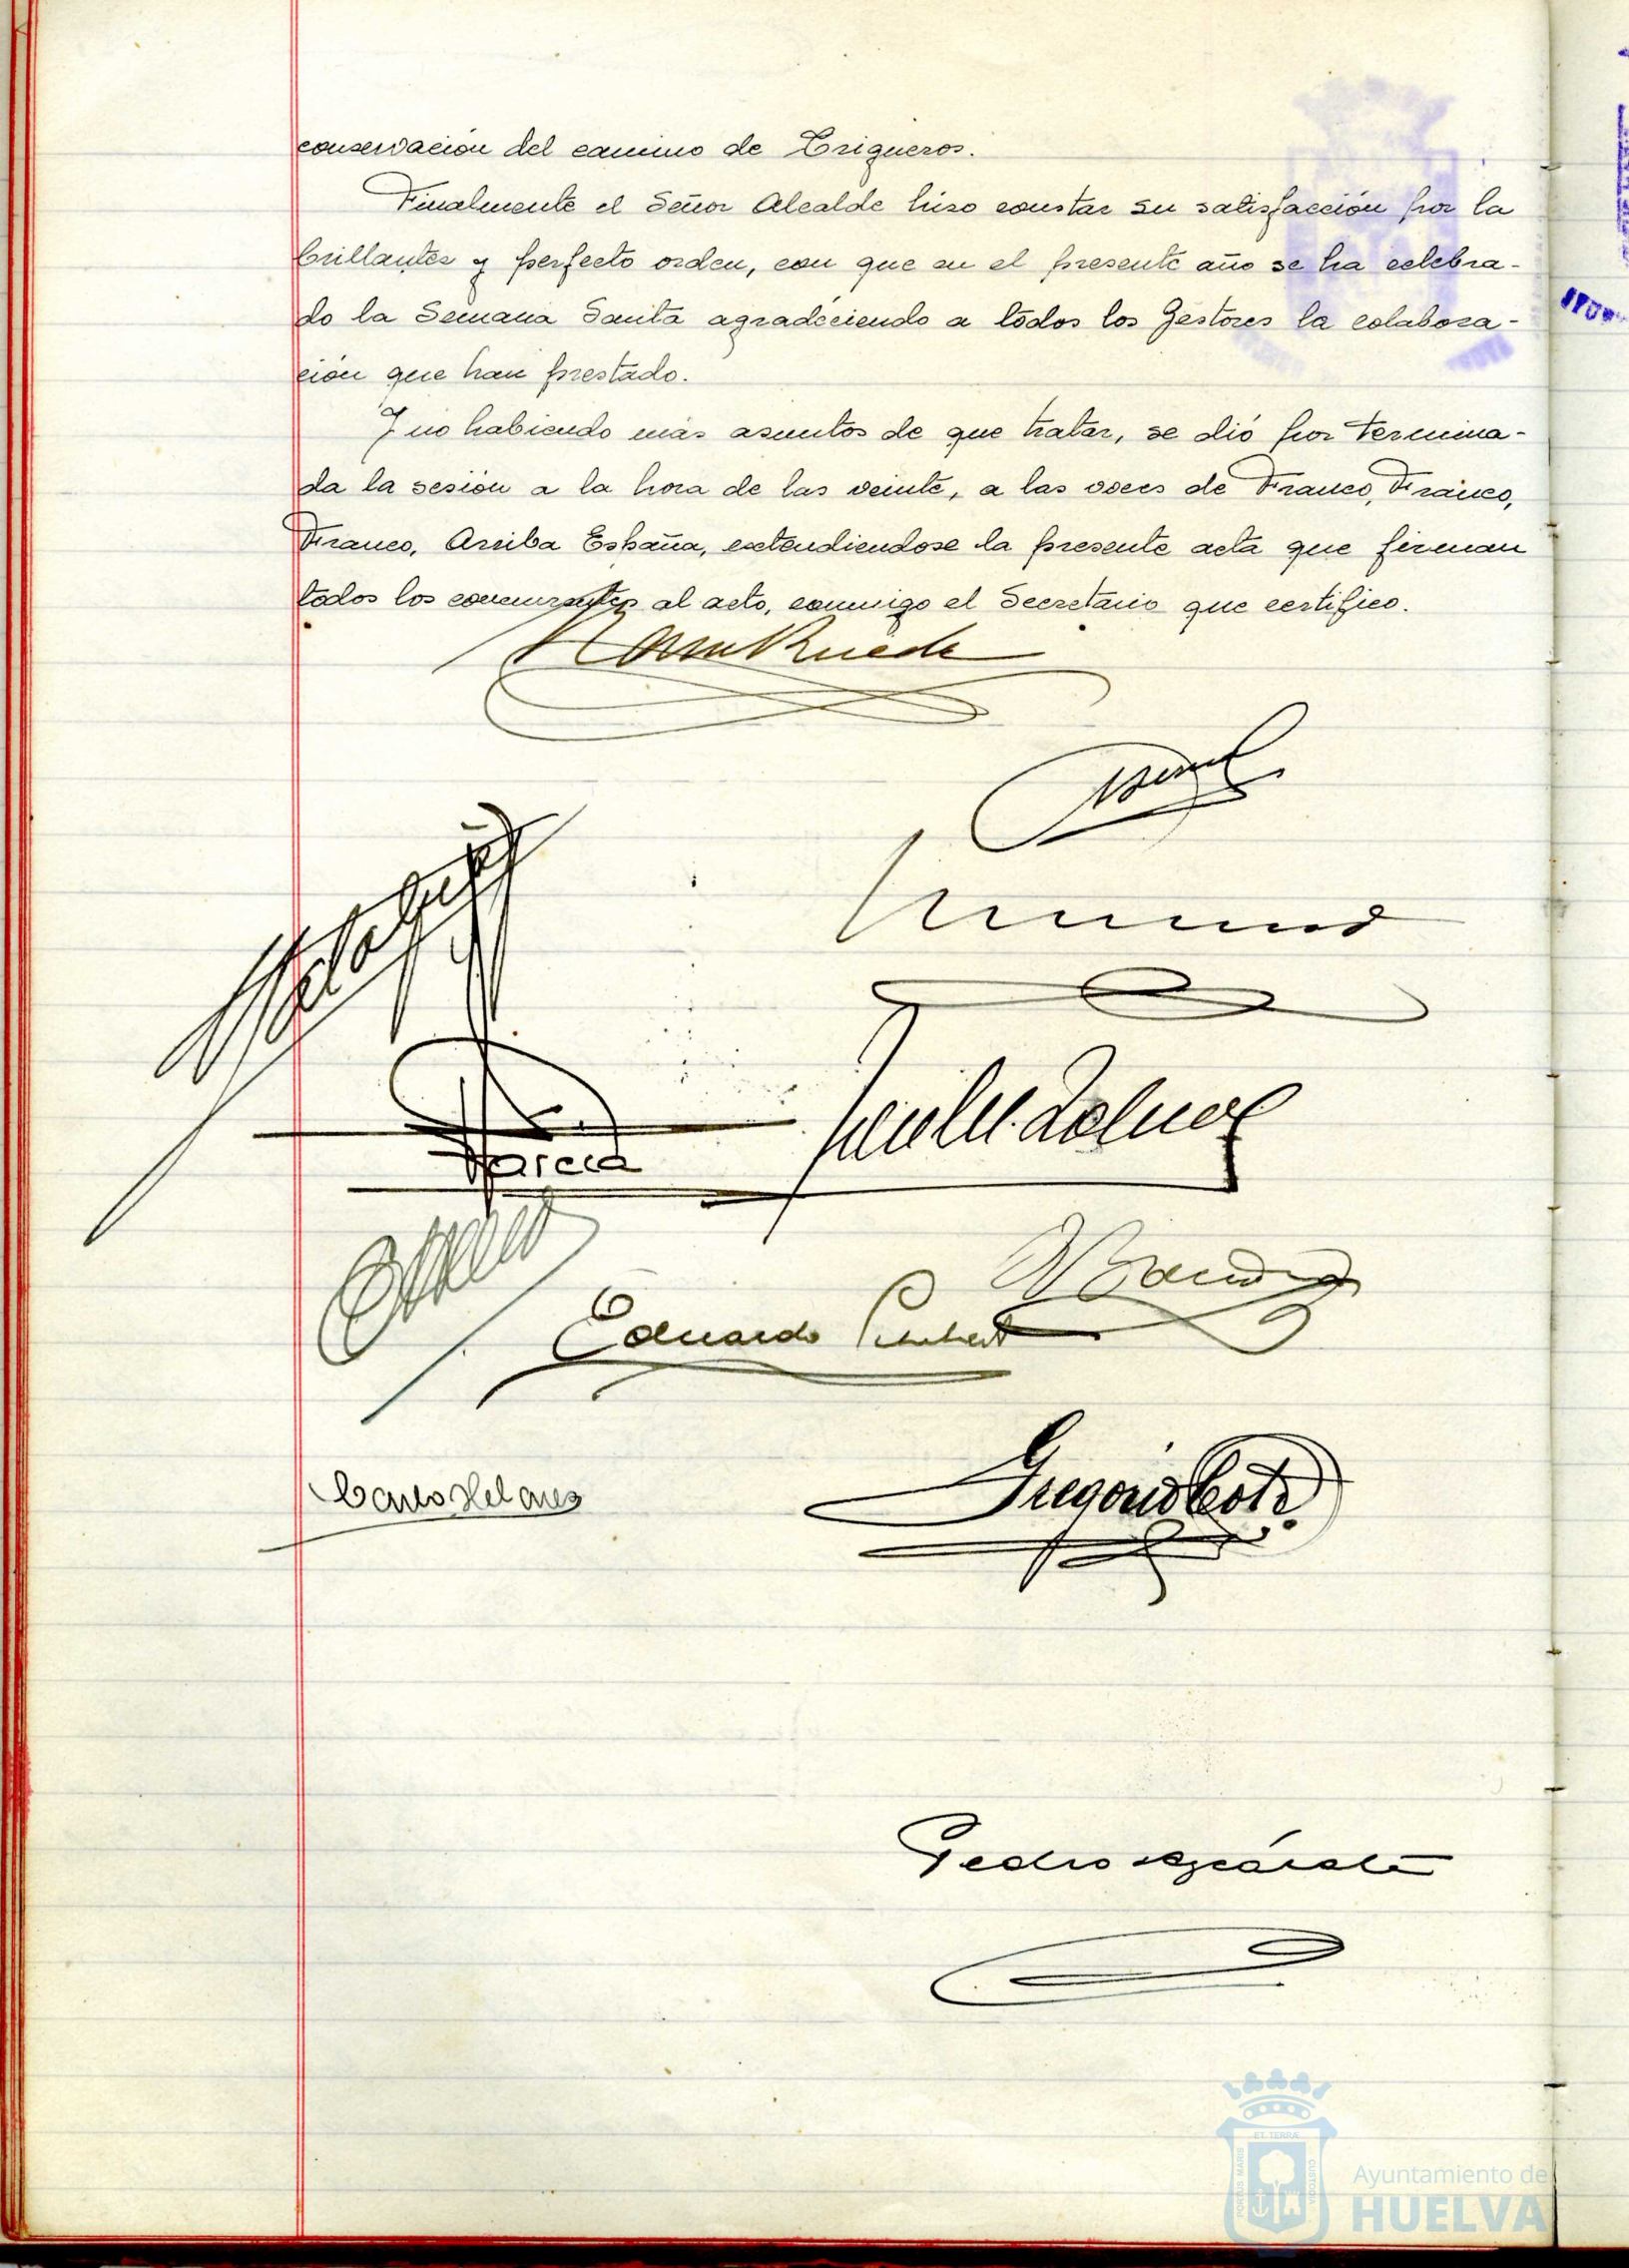 conservación del camino de Trigueros.
Finalmente el Señor Alcalde hizo constar su satisfacción por la
brillantez y perfecto orden, con que en el presente año se ha celebra-
do la Semana Santa agradeciendo a todos los Gestores la colabora-
ción que han prestado.
Y no habiendo más asuntos de que tratar, se dió por termina-
da la sesión a la hora de las veinte, a las voces de Franco, Franco,
Franco, Arriba España, extendiendose la presente acta que firman
todos los concurrentes al acto, conmigo el Secretario que certifico.
García
Eduardo
Gregorio
Pedro
PORTUS MARIS
ET TERRÆ
CUSTODIA
Ayuntamiento de
HUELVA